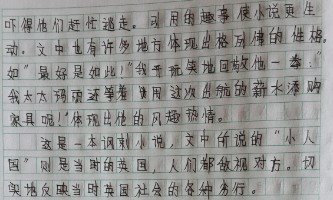 吓得他们赶忙逃走。引用的趣事使小说更生
动。文中也有许多地方体现出格列佛的性格。
如"最好是如此!"我开玩笑地回敬他一拳:"
我太太玛丽还等着 用这次出航的薪水添购
家具呢!"体现出他的风趣热情。
这是一本讽刺小说,文中所说的"小人
国"则是当时的英国,人们都敌视对方。切
实地反映当时英国社会的各种劣行。